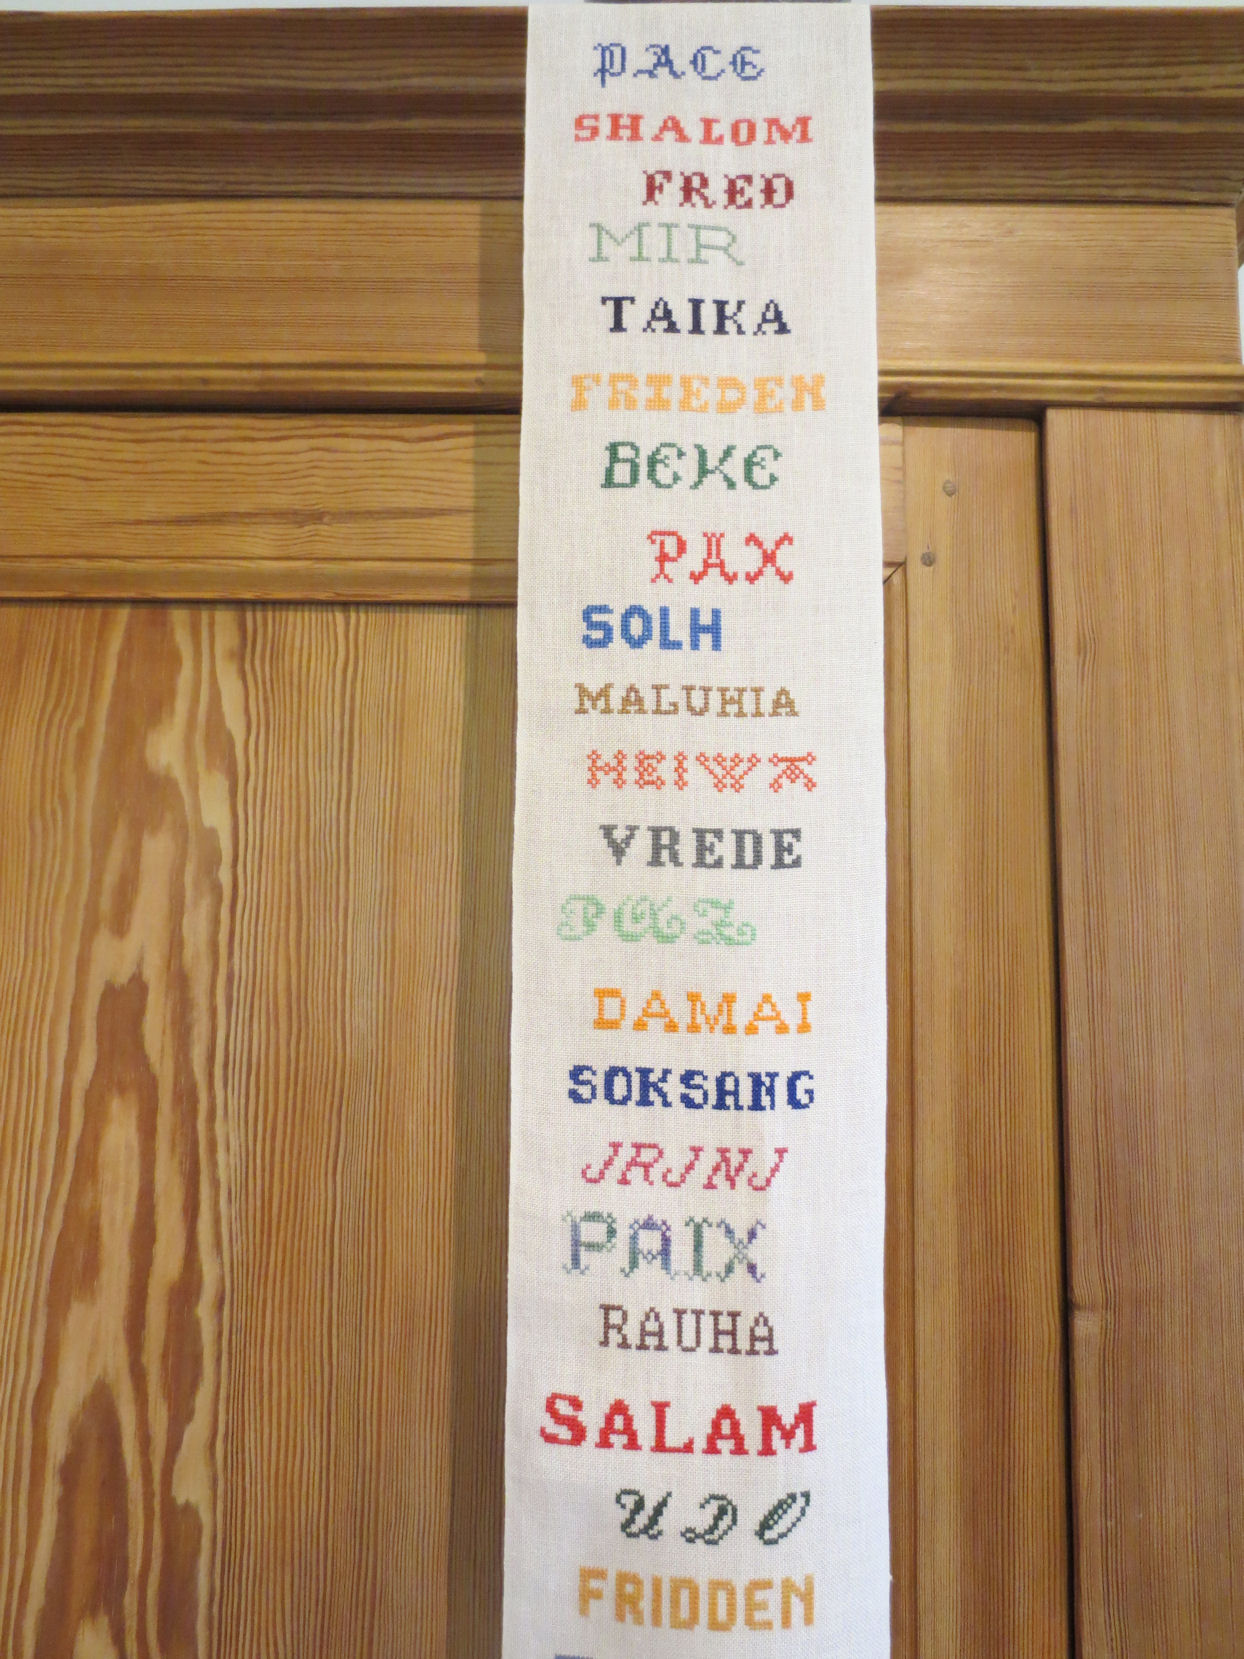 PACE
SHALOM
FRED
MIR
TAIKA
FRIEDEN
BEKE
PAX
SOLH
MALUHIA
HEIWA
VREDE
PAZ
DAMAI
SOKSANG
JRJNJ
PAIX
RAUHA
SALAM
UDO
FRIDDEN